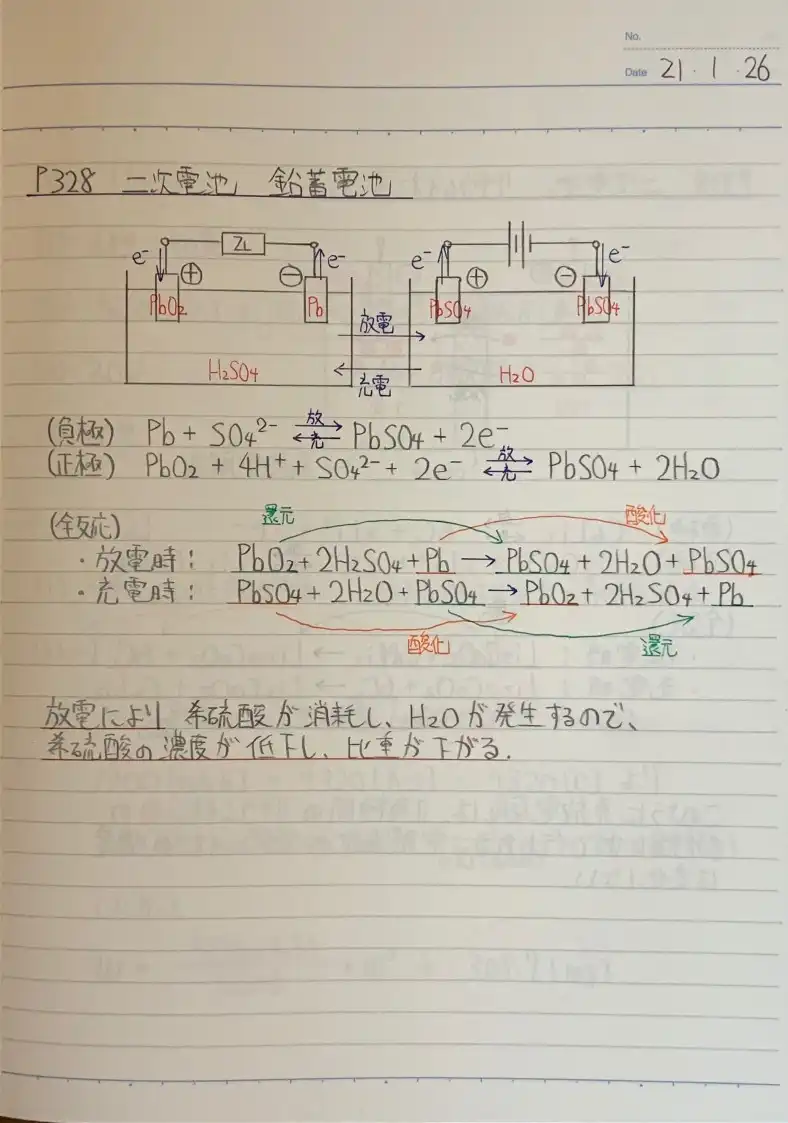 No.
Date 21・1・26
P328 二次電池 鉛蓄電池
e⁻ ZL e⁻ e⁻ e⁻
⊕ ⊖ ⊕ ⊖
PbO₂ Pb PbSO₄ PbSO₄
放電
H₂SO₄ 充電 H₂O
(負極) Pb + SO₄²⁻ 放⇄充 PbSO₄ + 2e⁻
(正極) PbO₂ + 4H⁺ + SO₄²⁻ + 2e⁻ 放⇄充 PbSO₄ + 2H₂O
(全反応) 還元 酸化
・放電時: PbO₂ + 2H₂SO₄ + Pb → PbSO₄ + 2H₂O + PbSO₄
・充電時: PbSO₄ + 2H₂O + PbSO₄ → PbO₂ + 2H₂SO₄ + Pb
酸化 還元
放電により 希硫酸が消耗し、H₂Oが発生するので、
希硫酸の濃度が低下し、比重が下がる.